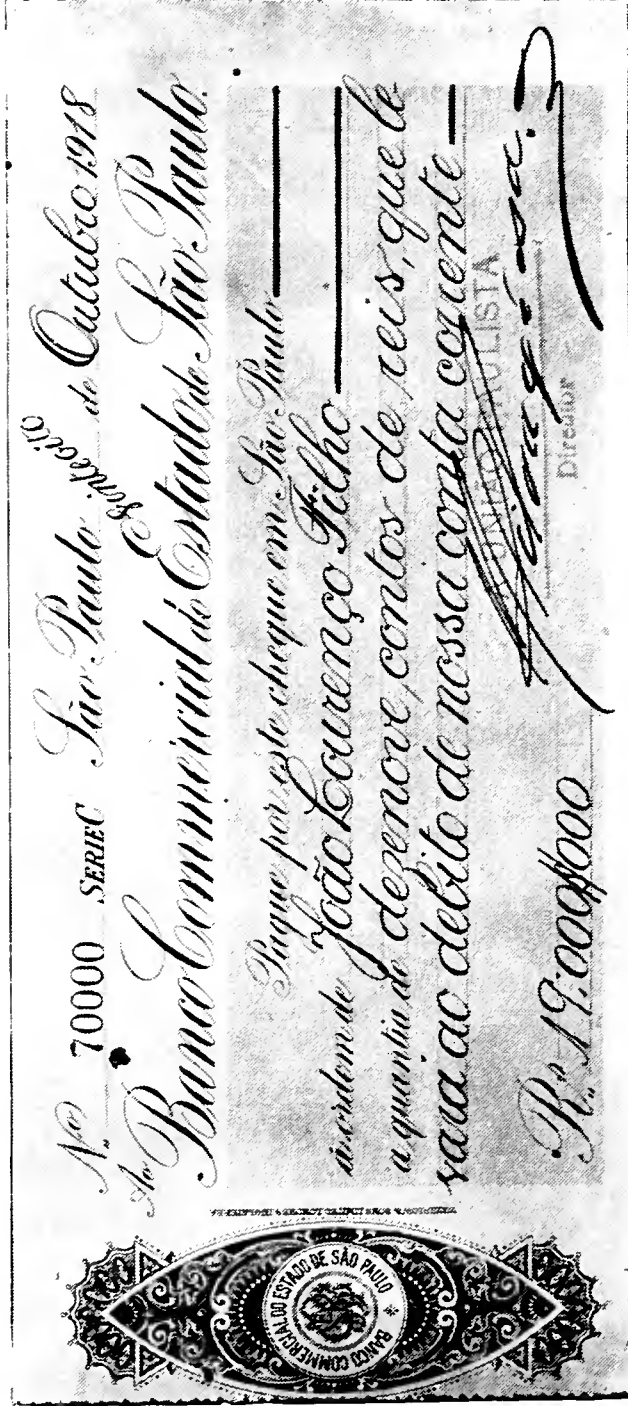 N.o 70000 SERIE C São Paulo vinteoito de Outubro 1918
Ao Banco Commercial do Estado de São Paulo.
Pague por este cheque em São Paulo
á ordem de João Lourenço Filho
a quantia de dezenove contos de reis, que le
vará ao debito de nossa conta corrente
A UNIÃO PAULISTA
Rs. 19:000$000
Director
BANCO COMMERCIAL DO ESTADO DE SÃO PAULO